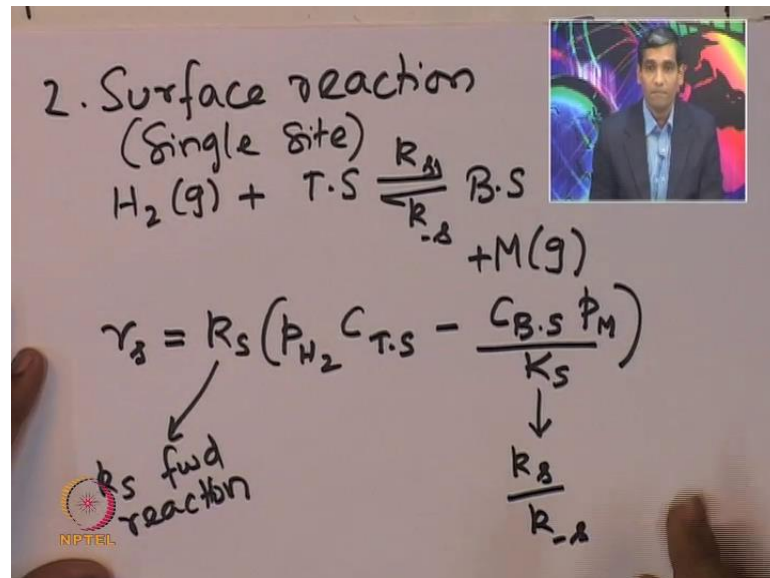 2. Surface reaction
(Single site)
H₂(g) + T.S ⇌ B.S
k_s
k_-s
+M(g)
r_s = k_s (p_H₂ C_T.S - C_B.S p_M / K_s)
k_s fwd
reaction
k_s / k_-s
NPTEL